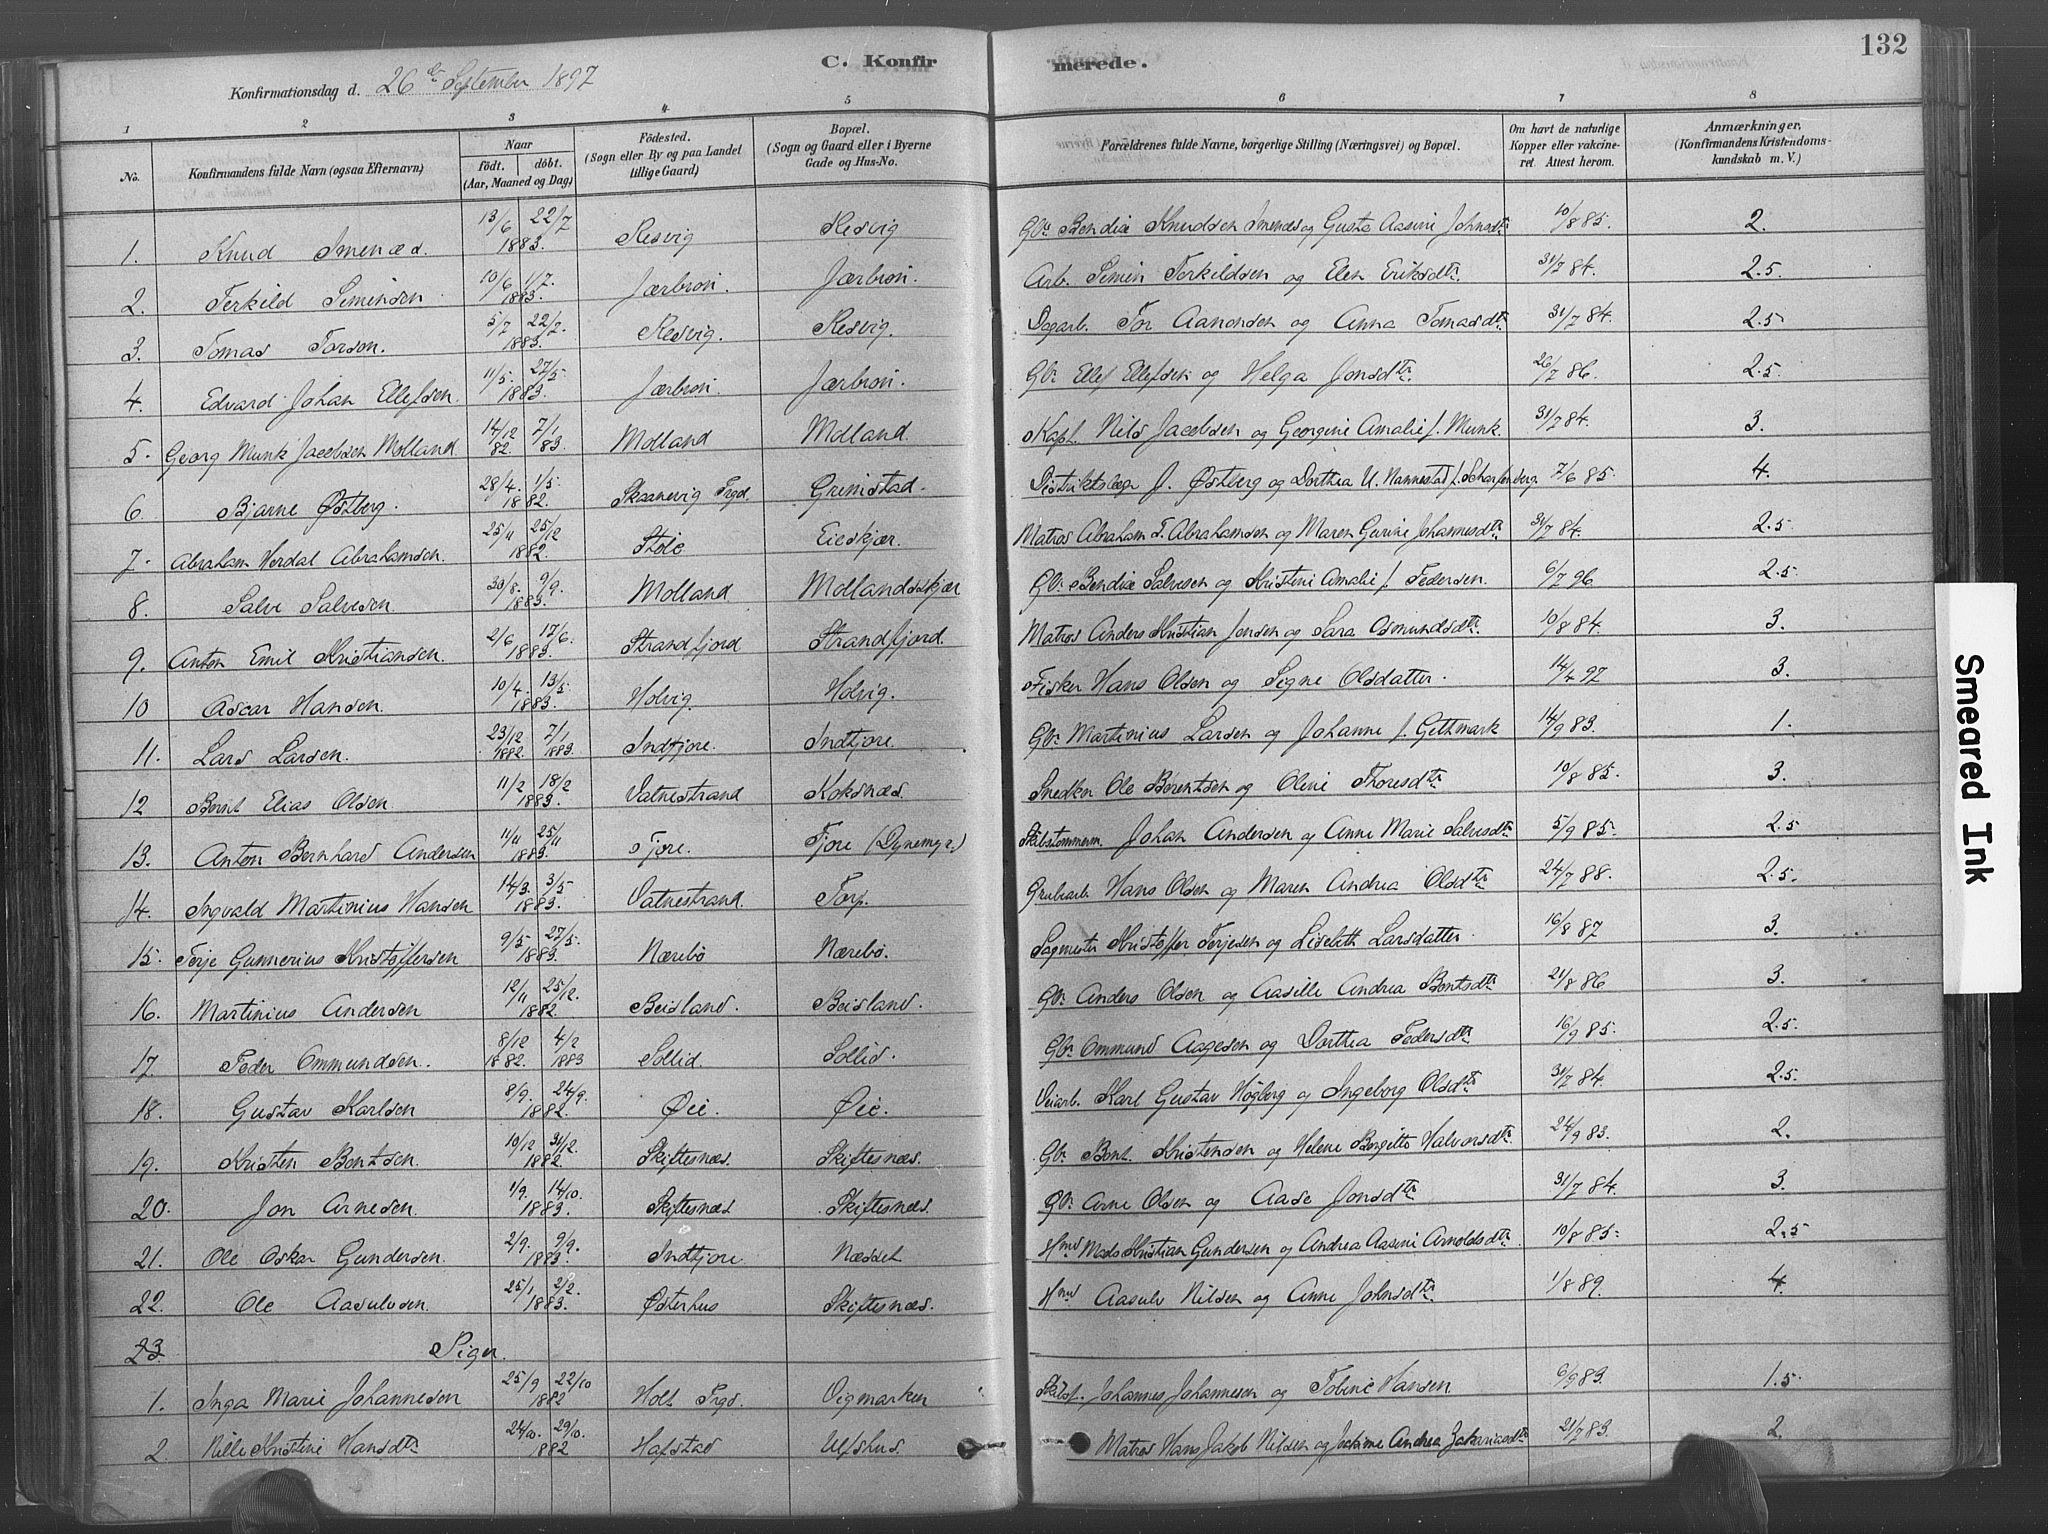 132
C. Konfir merede.
Konfirmationsdag d. 26de September 1897
1 2 3 4 5 6 7 8
No. Konfirmandens fulde Navn (ogsaa Efternavn) Naar födt. döbt. (Aar, Maaned og Dag) Födested. (Sogn eller By og paa Landet tillige Gaard) Bopæl. (Sogn og Gaard eller i Byerne Gade og Hus-No. Forældrenes fulde Navne, borgerlige Stilling (Næringsvei) og Bopæl. Om havt de naturlige Kopper eller vakcineret. Attest herom. Anmærkninger, (Konfirmandens Kristendomskundskab m. V.)
1. Knud Imenæs. 13/6 22/7 1883. Resvig Resvig Gbr. Bendix Knudsen Imenes og Gusta Aasini Johnsdtr 10/8 85. 2.
2. Terkild Simensen 10/6 1/7. 1883. Jærbron. Jærbron. Arb. Simen Terkildsen og Elen Eriksdtr. 31/7 84. 2.5.
3. Tomas Torson. 5/7 22/7. 1883. Resvig. Resvig. Dagarb. Tor Aanonsen og Anna Tomasdtr 31/7 84. 2.5
4. Edvard Johan Ellefsen. 11/5. 27/5 1883. Jærbron. Jærbron. Gbr. Ellef Ellefsen og Helga Jonsdtr. 26/7 86. 2.5.
5. Georg Munk Jacobsen Molland 14/12 82. 7/1 83 Molland Molland. Kapt. Nils Jacobsen og Georgine Amalie f. Munk. 31/7 84. 3.
6. Bjarne Østberg. 28/4. 1/5. 1882. Skaanevig Prgd. Grimstad. Distriktslæge J. Østberg og Dorthea U. Nannestad f. Scharfenberg. 7/6 85. 4.
7. Abraham Hordal Abrahamsen. 25/11 25/12 1882. Støle Eieskjær. Matros Abraham T. Abrahamsen og Maren Gurine Johannesdtr 31/7 84. 2.5
8. Salve Salvesen. 30/8. 9/9. 1883. Molland Mollandsskjær Gbr. Bendix Salvesen og Kristine Amalie f. Pedersen. 6/7 96 2.5
9. Anton Emil Kristiansen. 2/6 17/6. 1883. Strandfjord Strandfjord. Matros Anders Kristian Jensen og Sara Osmundsdtr. 10/8 84. 3.
10 Ascar Hansen. 10/4. 13/5 1883. Holvig. Holvig. Fisker Hans Olsen og Signe Olsdatter. 14/4 97 3.
11. Lars Larsen. 23/12 1882. 7/1 1883. Indtjore. Indtjore. Gbr. Martinius Larsen og Johanne f. Gethmark 14/9 83. 1.
12 Bernt Elias Olsen. 11/2 18/2 1883. Vatnestrand Koksnæs. Snedker Ole Berentsen og Oline Thoresdtr 10/8 85. 3.
13. Anton Bernhard Andersen 11/11 25/11 1883. Fjøre. Fjøre (Dynemyr.) Skibstømmerm. Johan Andersen og Anne Marie Salvesdtr 5/9 85. 2.5
14. Ingvald Martinius Hansen 14/3. 3/5. 1883. Vatnestrand. Torp. Grubearb. Hans Olsen og Maren Andrea Olsdtr 24/7 88. 2.5.
15. Terje Gunnerius Kristoffersen 9/5 27/5. 1883. Nærebö Nærebö. Sagmester Kristoffer Terjesen og Liselith Larsdatter 16/8 87 3.
16. Martinius Andersen 12/11 25/12. 1882. Beisland. Beisland. Gbr. Anders Olsen og Aasille Andrea Berntsdtr 21/8 86 3.
17. Peder Ommundsen. 8/12 1882. 4/2 1883 Sollid. Sollid. Gbr. Ommund Aagesen og Dorthea Pedersdtr. 16/9 85. 2.5.
18. Gustav Karlsen 8/9. 24/9. 1882. Øie. Øie. Veiarb. Karl Gustav Høgberg og Ingeborg Olsdtr. 31/7 84. 2.5.
19. Kristen Berntsen 10/12 31/12. 1882. Skiftesnæs. Skiftesnæs. Gbr. Bernt Kristensen og Helene Birgitte Halvorsdtr 24/9 83. 2.
20. Jon Arnesen. 1/9. 14/10. 1883. Skiftesnæs Skiftesnæs. Gbr. Arne Olsen og Aase Jonsdtr 31/7 84. 3.
21. Ole Oskar Gundersen. 2/9. 9/9. 1883. Indtjore Næsset Hmd Mads Kristian Gundersen og Andrea Aasine Arnoldsdtr 10/8 85. 2.5
22. Ole Aasulvsen. 25/1 2/2. 1883. Østerhus Skiftesnæs. Hmd Aasulv Nilsen og Anne Johnsdtr. 1/8 89. 4
23. Piger.
1. Inga Marie Johannesen 25/9 22/10 1882 Holt Prgd. Vigmarken Skibsf. Johannes Johannesen og Tobine Hansen. 6/9 83. 1.5
2. Nille Kristine Hansdtr 24/10. 29/10. 1882 Hafstad Ulfshus. Matros Hans Jakob Nilsen og Jockime Andrea Zakariasdtr 21/7 83. 2.
Smeared Ink